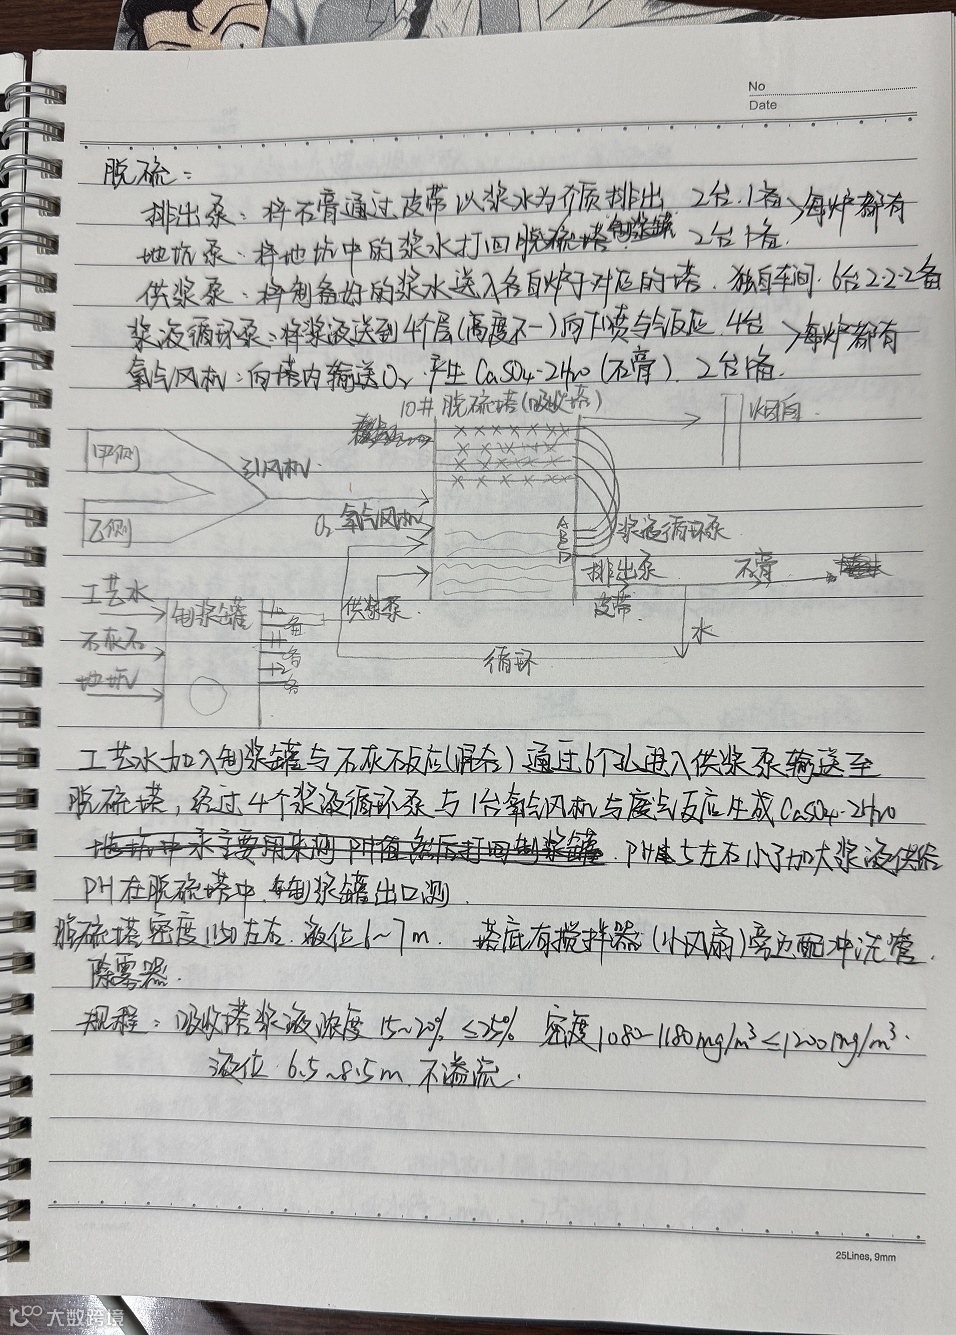 No
Date
脱硫:
排出泵:将石膏通过皮带以浆水为介质排出 2台.1备 >每炉都有
地坑泵:将地坑中的浆水打回脱硫塔制浆罐 2台1备.
供浆泵:将制备好的浆水送入各自炉子对应的塔.独自车间.6台2.2.2备
浆液循环泵:将浆液送到4个层(高度不一)向下喷与气反应 4台 >每炉都有
氧气风机:向塔内输送O₂.产生CaSO4·2H2O(石膏).2台1备.
10# 脱硫塔(吸收塔)
烟囱.
甲侧
引风机.
乙侧
O₂ 氧气风机
A
B
C
D
浆液循环泵
排出泵 石膏
皮带
水
工艺水
制浆罐
供浆泵
备
石灰石
备
地坑
备
循环
工艺水加入制浆罐与石灰石反应(混合)通过6个孔进入供浆泵输送至
脱硫塔,经过4个浆液循环泵与1台氧气风机与废气反应生成CaSO4·2H2O
地坑中泵主要用来测PH值然后打回制浆罐.PH 5左右小了加大浆液供给
PH在脱硫塔中.制浆罐出口测.
脱硫塔密度1150左右.液位6~7m. 塔底有搅拌器(小风扇)旁边配冲洗管.
除雾器.
规程:吸收塔浆液浓度15~20% ≤25% 密度1080-1180mg/m³≤1200mg/m³.
液位 6.5~8.5m.不溢流.
25Lines, 9mm
大数跨境